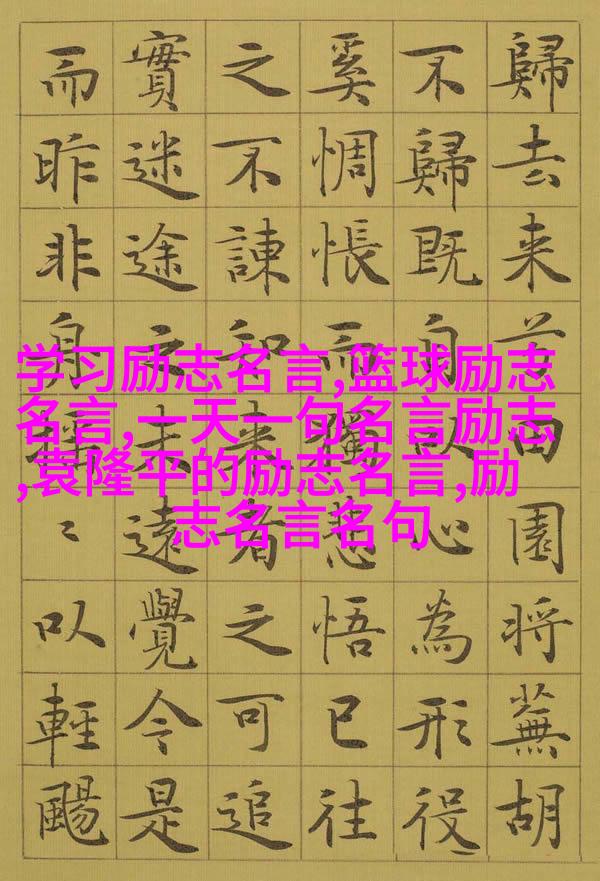 歸去来兮田園将蕪胡
不歸既自以心為形役
奚惆悵而獨悲悟已往
之不諫知来者之可追
實迷途之未遠覺今是
而昨非舟摇〻以輕颺
学习励志名言,篮球励志
名言,一天一句名言励志
,袁隆平的励志名言,励
志名言名句